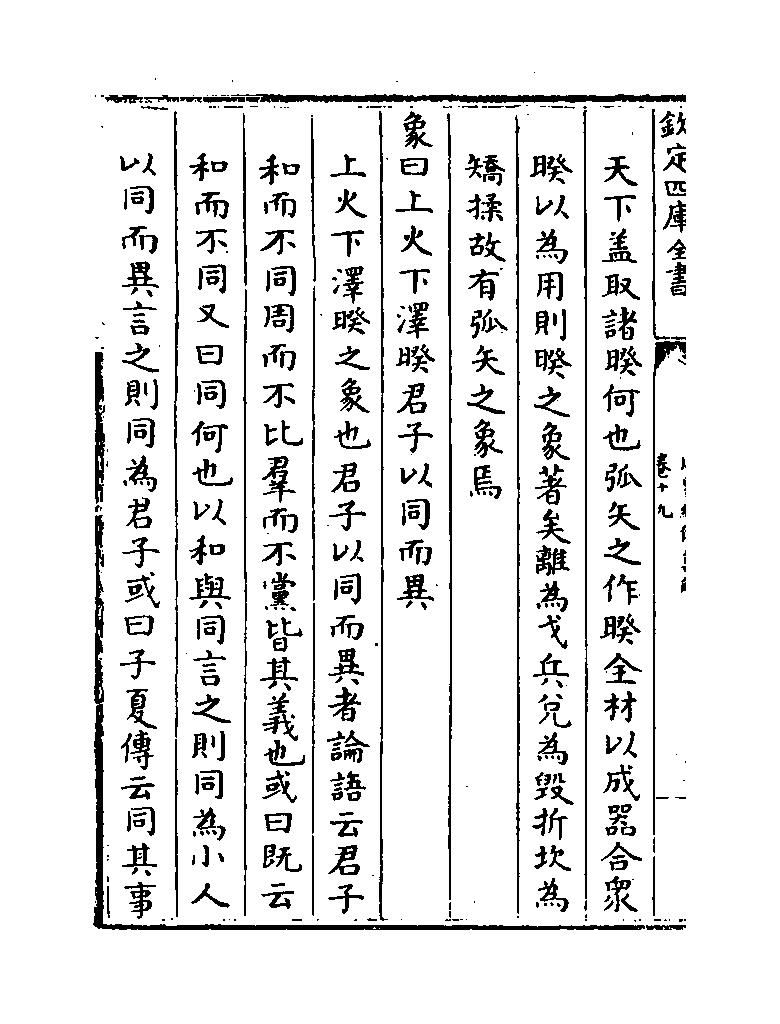 欽定四庫全書
卷十九
天下盖取諸暌何也弧矢之作暌全材以成器合衆
暌以為用則暌之象著矣離為戈兵兌為毀折坎為
矯揉故有弧矢之象焉
象曰上火下澤暌君子以同而異
上火下澤暌之象也君子以同而異者論語云君子
和而不同周而不比羣而不黨皆其義也或曰既云
和而不同又曰同何也以和與同言之則同為小人
以同而異言之則同為君子或曰子夏傳云同其事